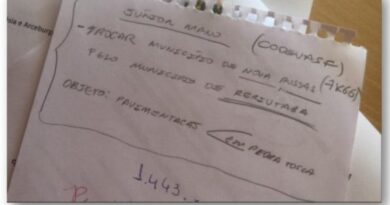 sia e Arceburgo
JÚNIOR MANO (CODEVASF)
- TROCAR MUNICÍPIO DE NOVA RUSSAS (7K66)
PELO MUNICÍPIO DE RERIUTABA
OBJETO: PAVIMENTAÇÃO EM PEDRA TOSCA
1.443.